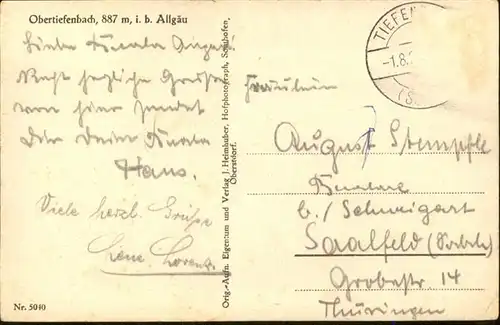 Obertiefenbach, 887 m, i. b. Allgäu
Liebe
Recht herzliche Grüße
von hier sendet
Dir Dein
Hans.
Viele herzl. Grüße
Nr. 5040
Orig.-Aufn. Eigentum und Verlag J. Heimhuber, Hofphotograph, Sonthofen,
Oberstdorf.
TIEFEN
-1.8.
Fräulein
August Stempfle
b./ Schweigart
Saalfeld (Saale)
Grobestr 14
Thüringen